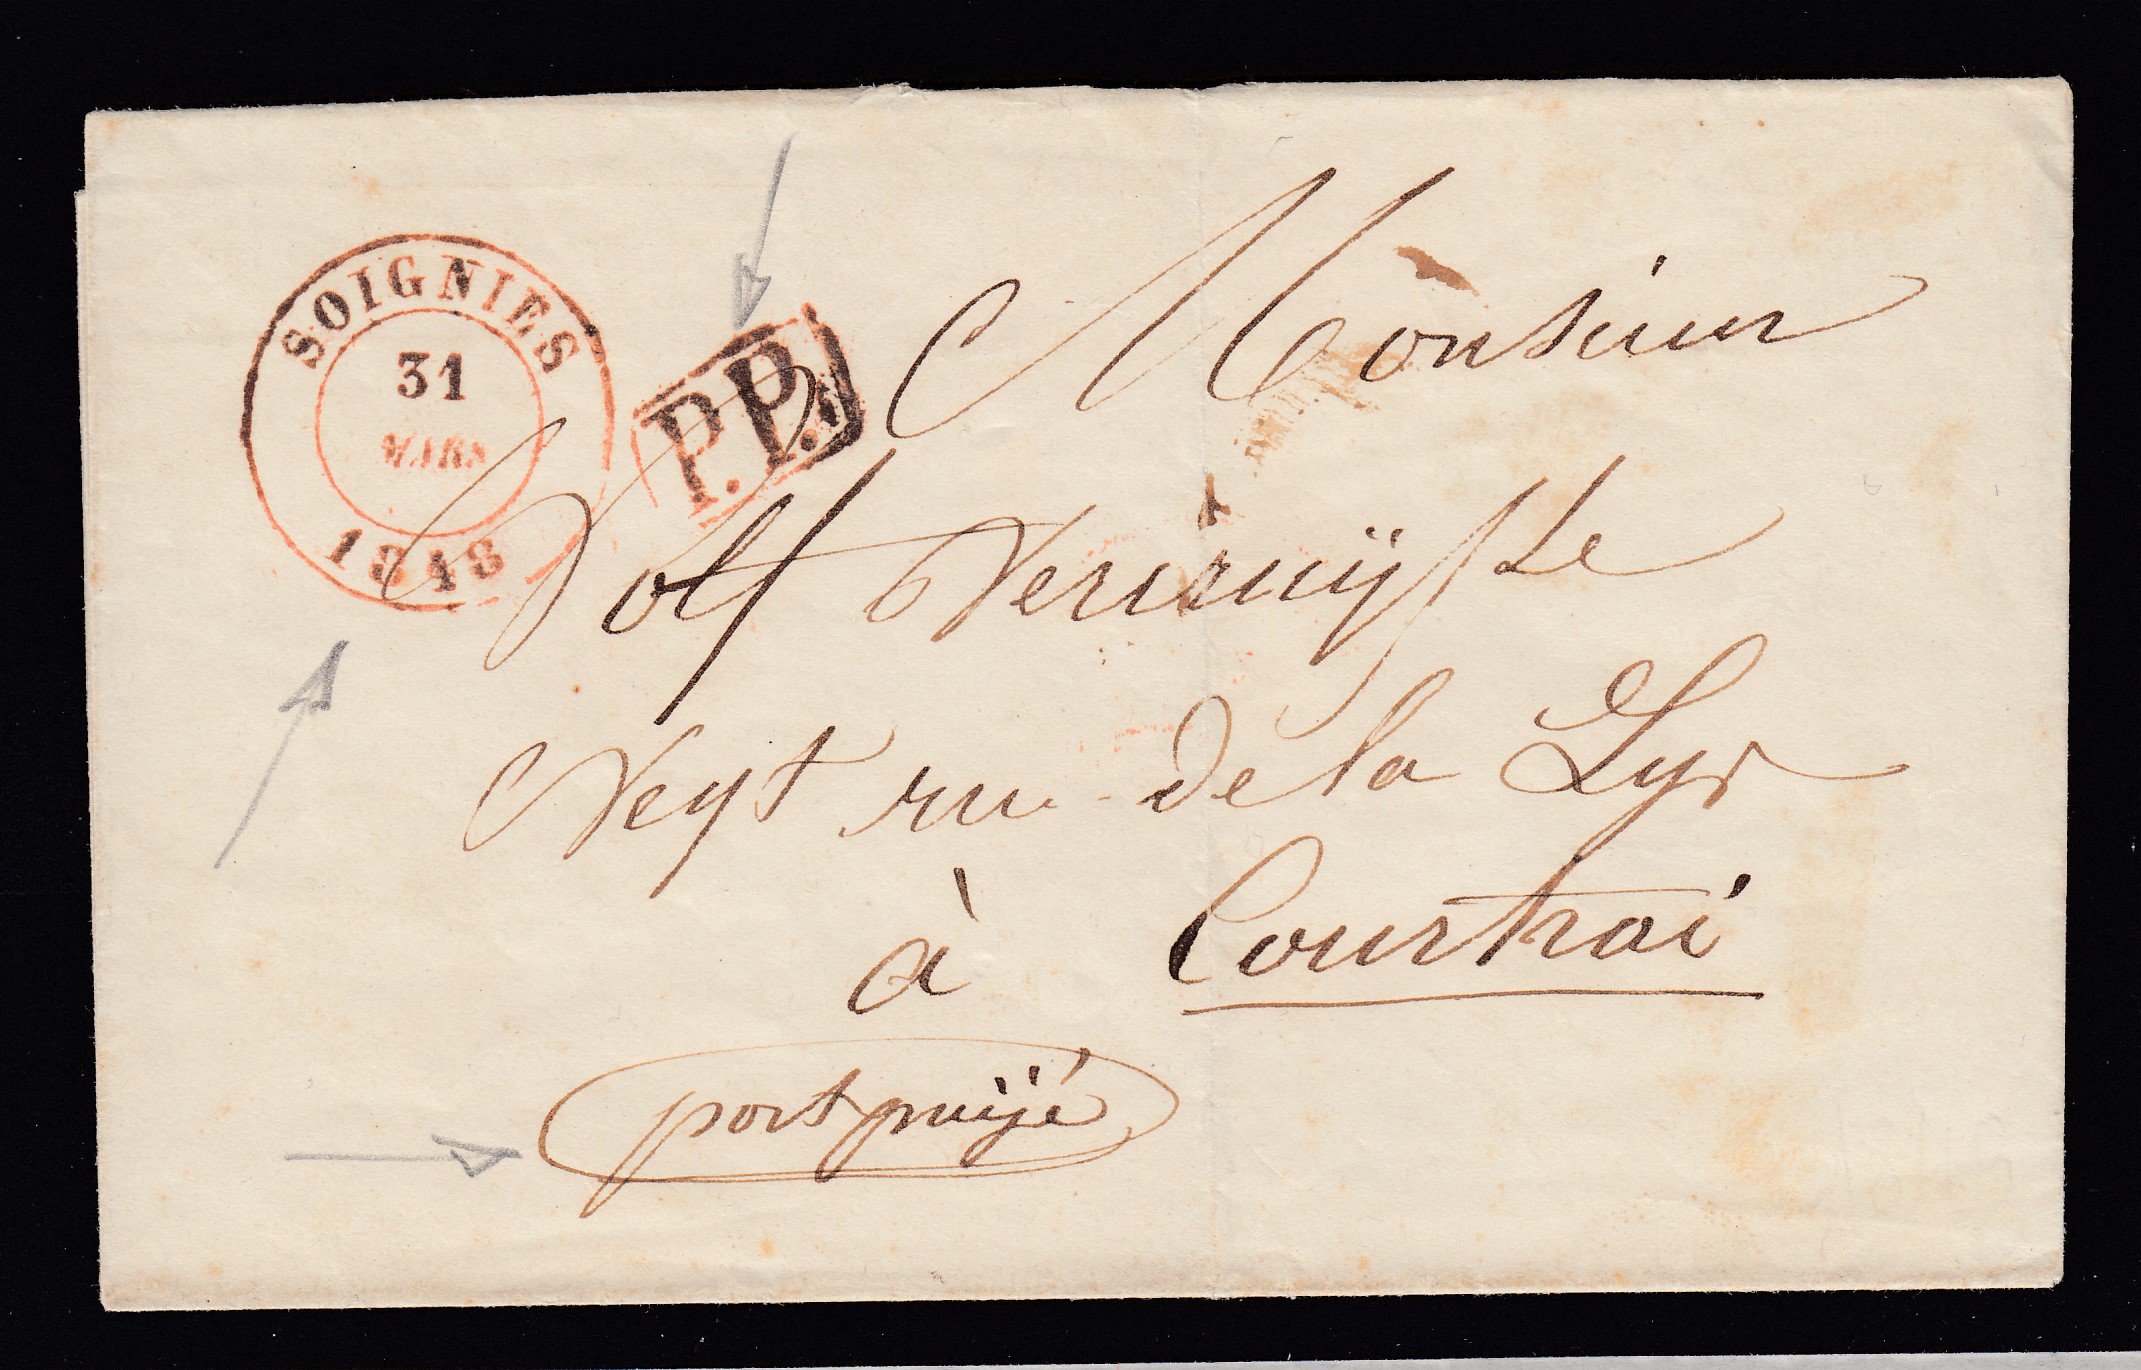 SOIGNIES
31
MARS
1848
P.P.
Monsieur
Veyt rue de la Lys
à Courtrai
port payé